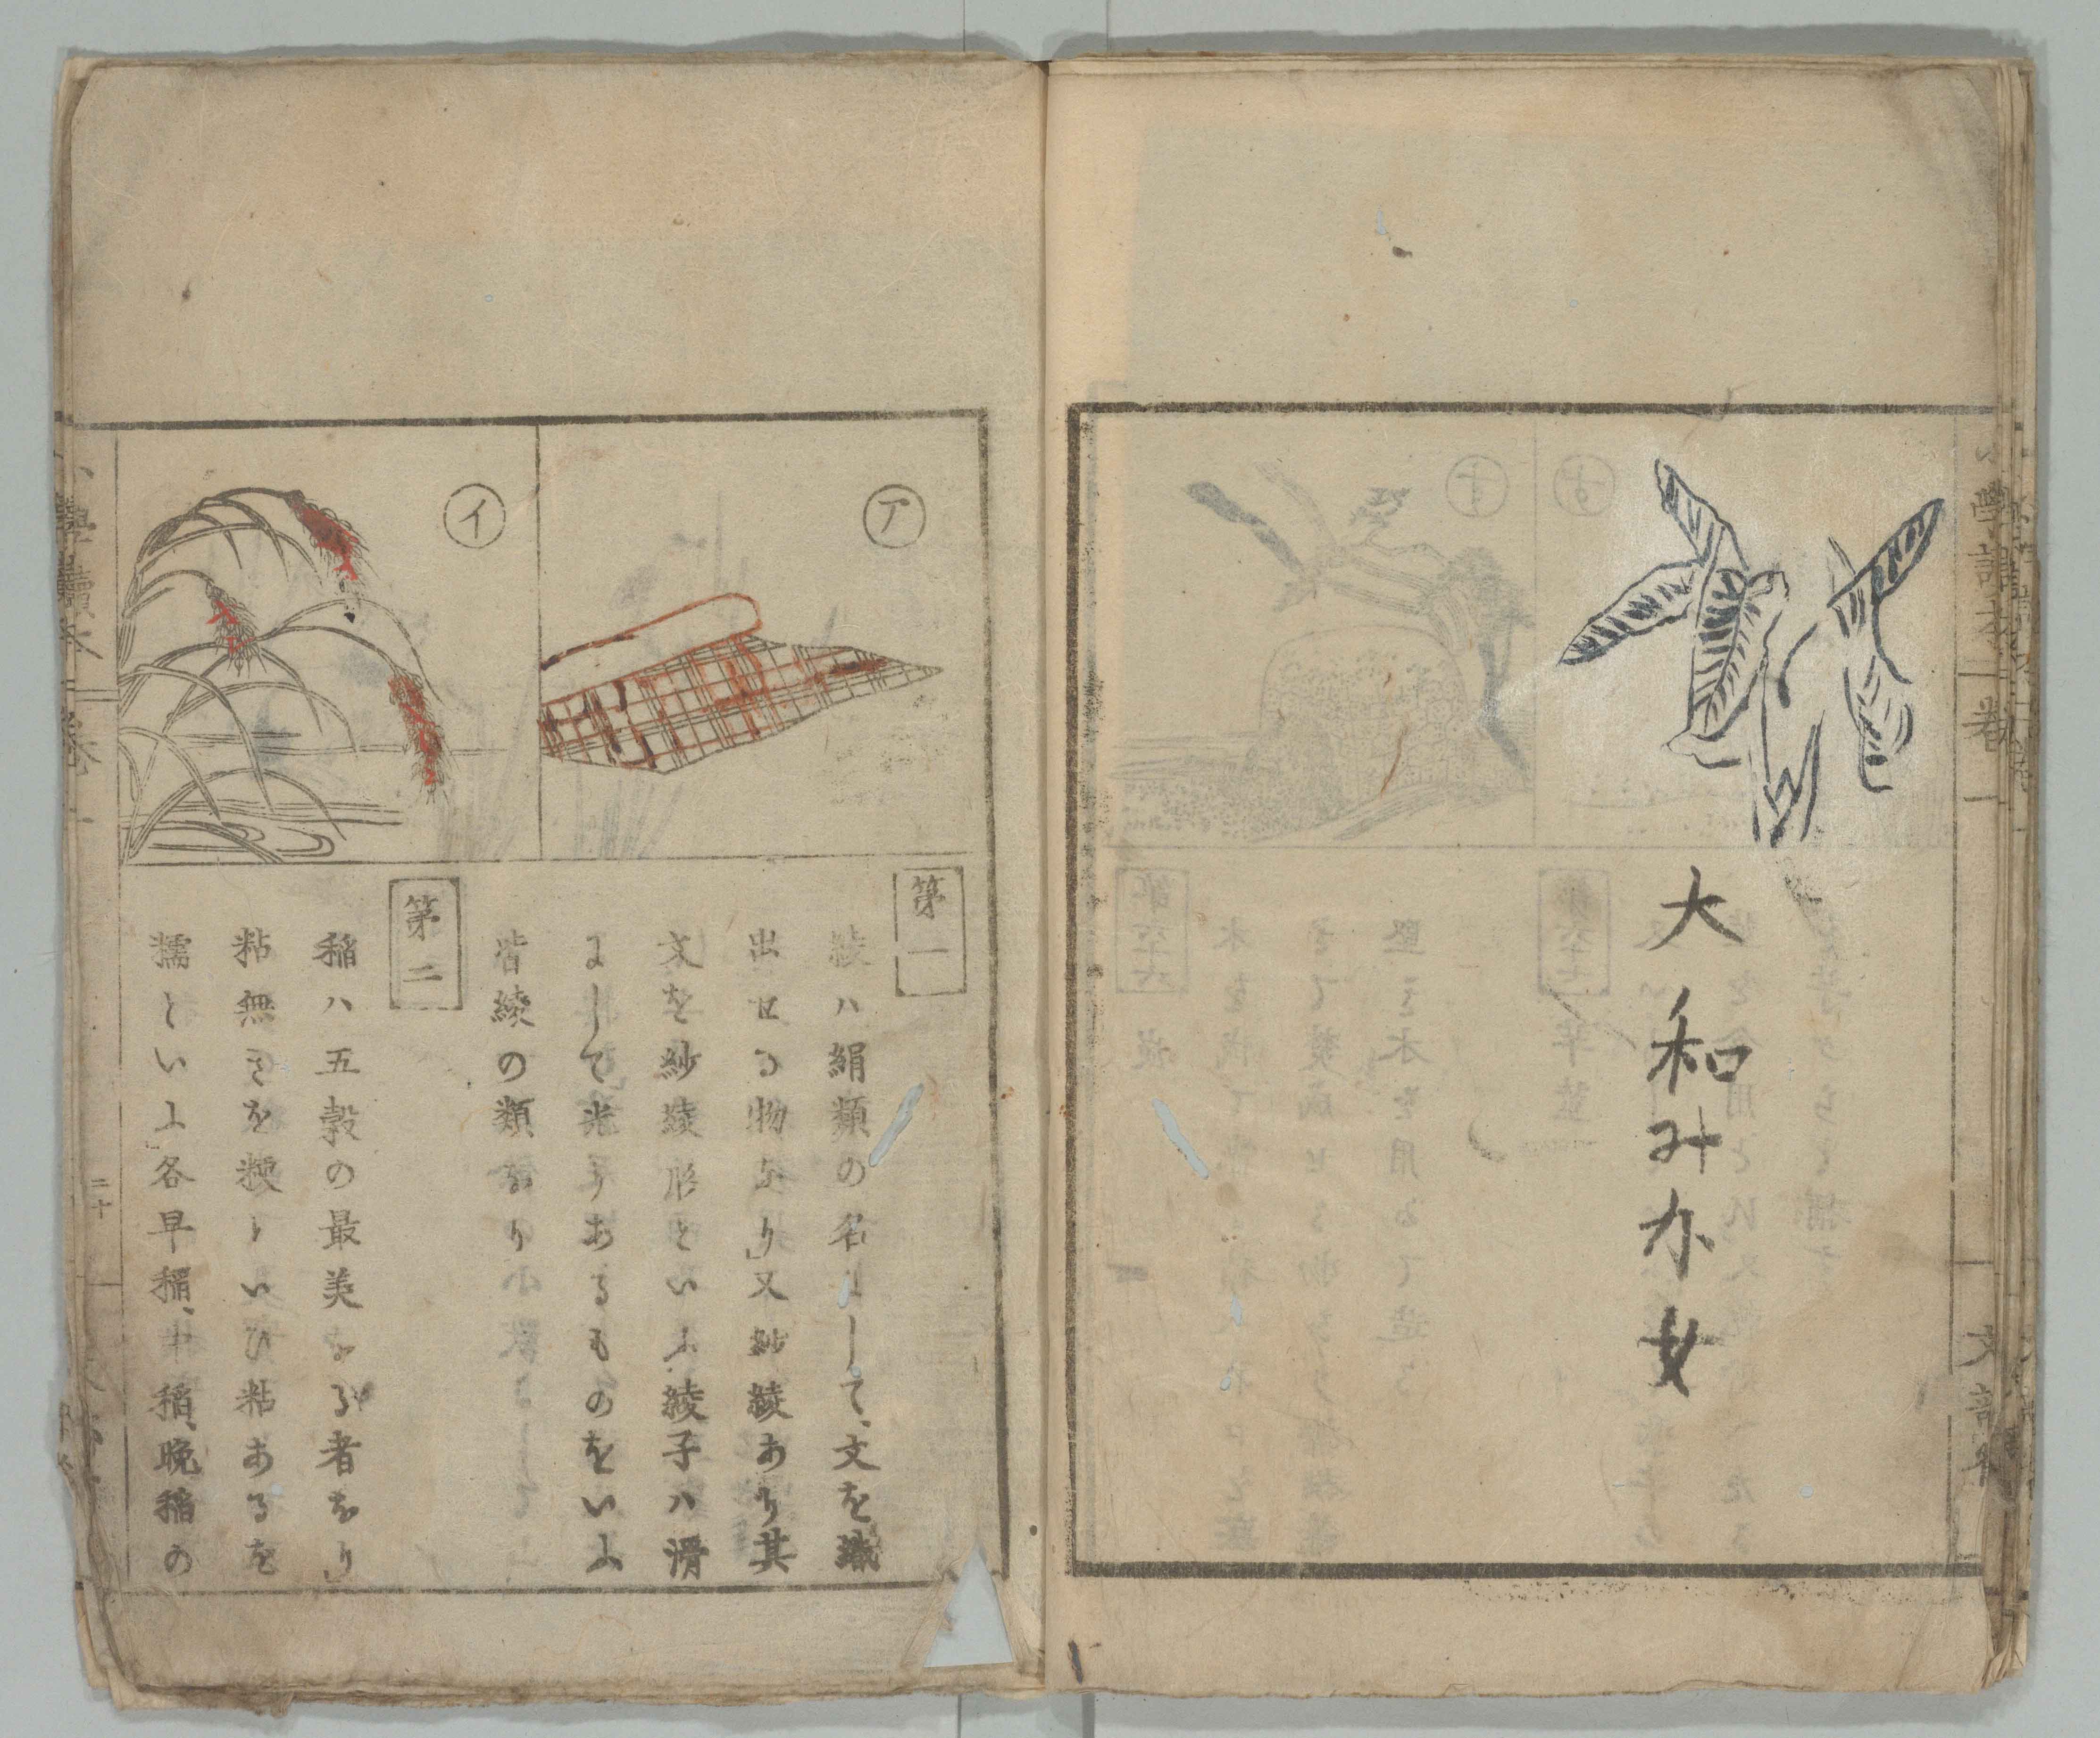 小學讀本
卷一
文部省
大和みか女
ア
第一
綾ハ絹類の名にして、文を織
出せる物なり」又紗綾あり其
文を紗綾形といふ、綾子ハ滑
にして光りあるものをいふ
皆綾の類なり
イ
第二
稲ハ五穀の最美なる者なり」
粘無きを粳といひ粘あるを
糯といふ」各早稲、中稲、晩稲の
小學讀本
卷一
二十